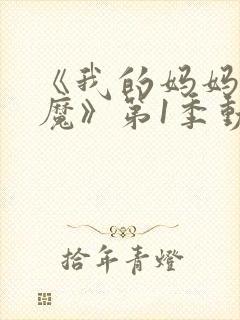 《我的妈妈
魔》第1季動
拾年青燈